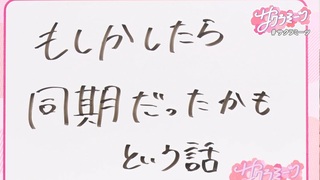 サクラミーツ
#サクラミーツ
もしかしたら
同期だったかも
という話
サクラミーツ